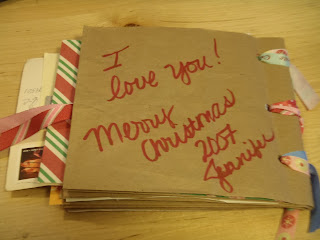 I
love you!
Merry
Christmas
2007
Jennifer